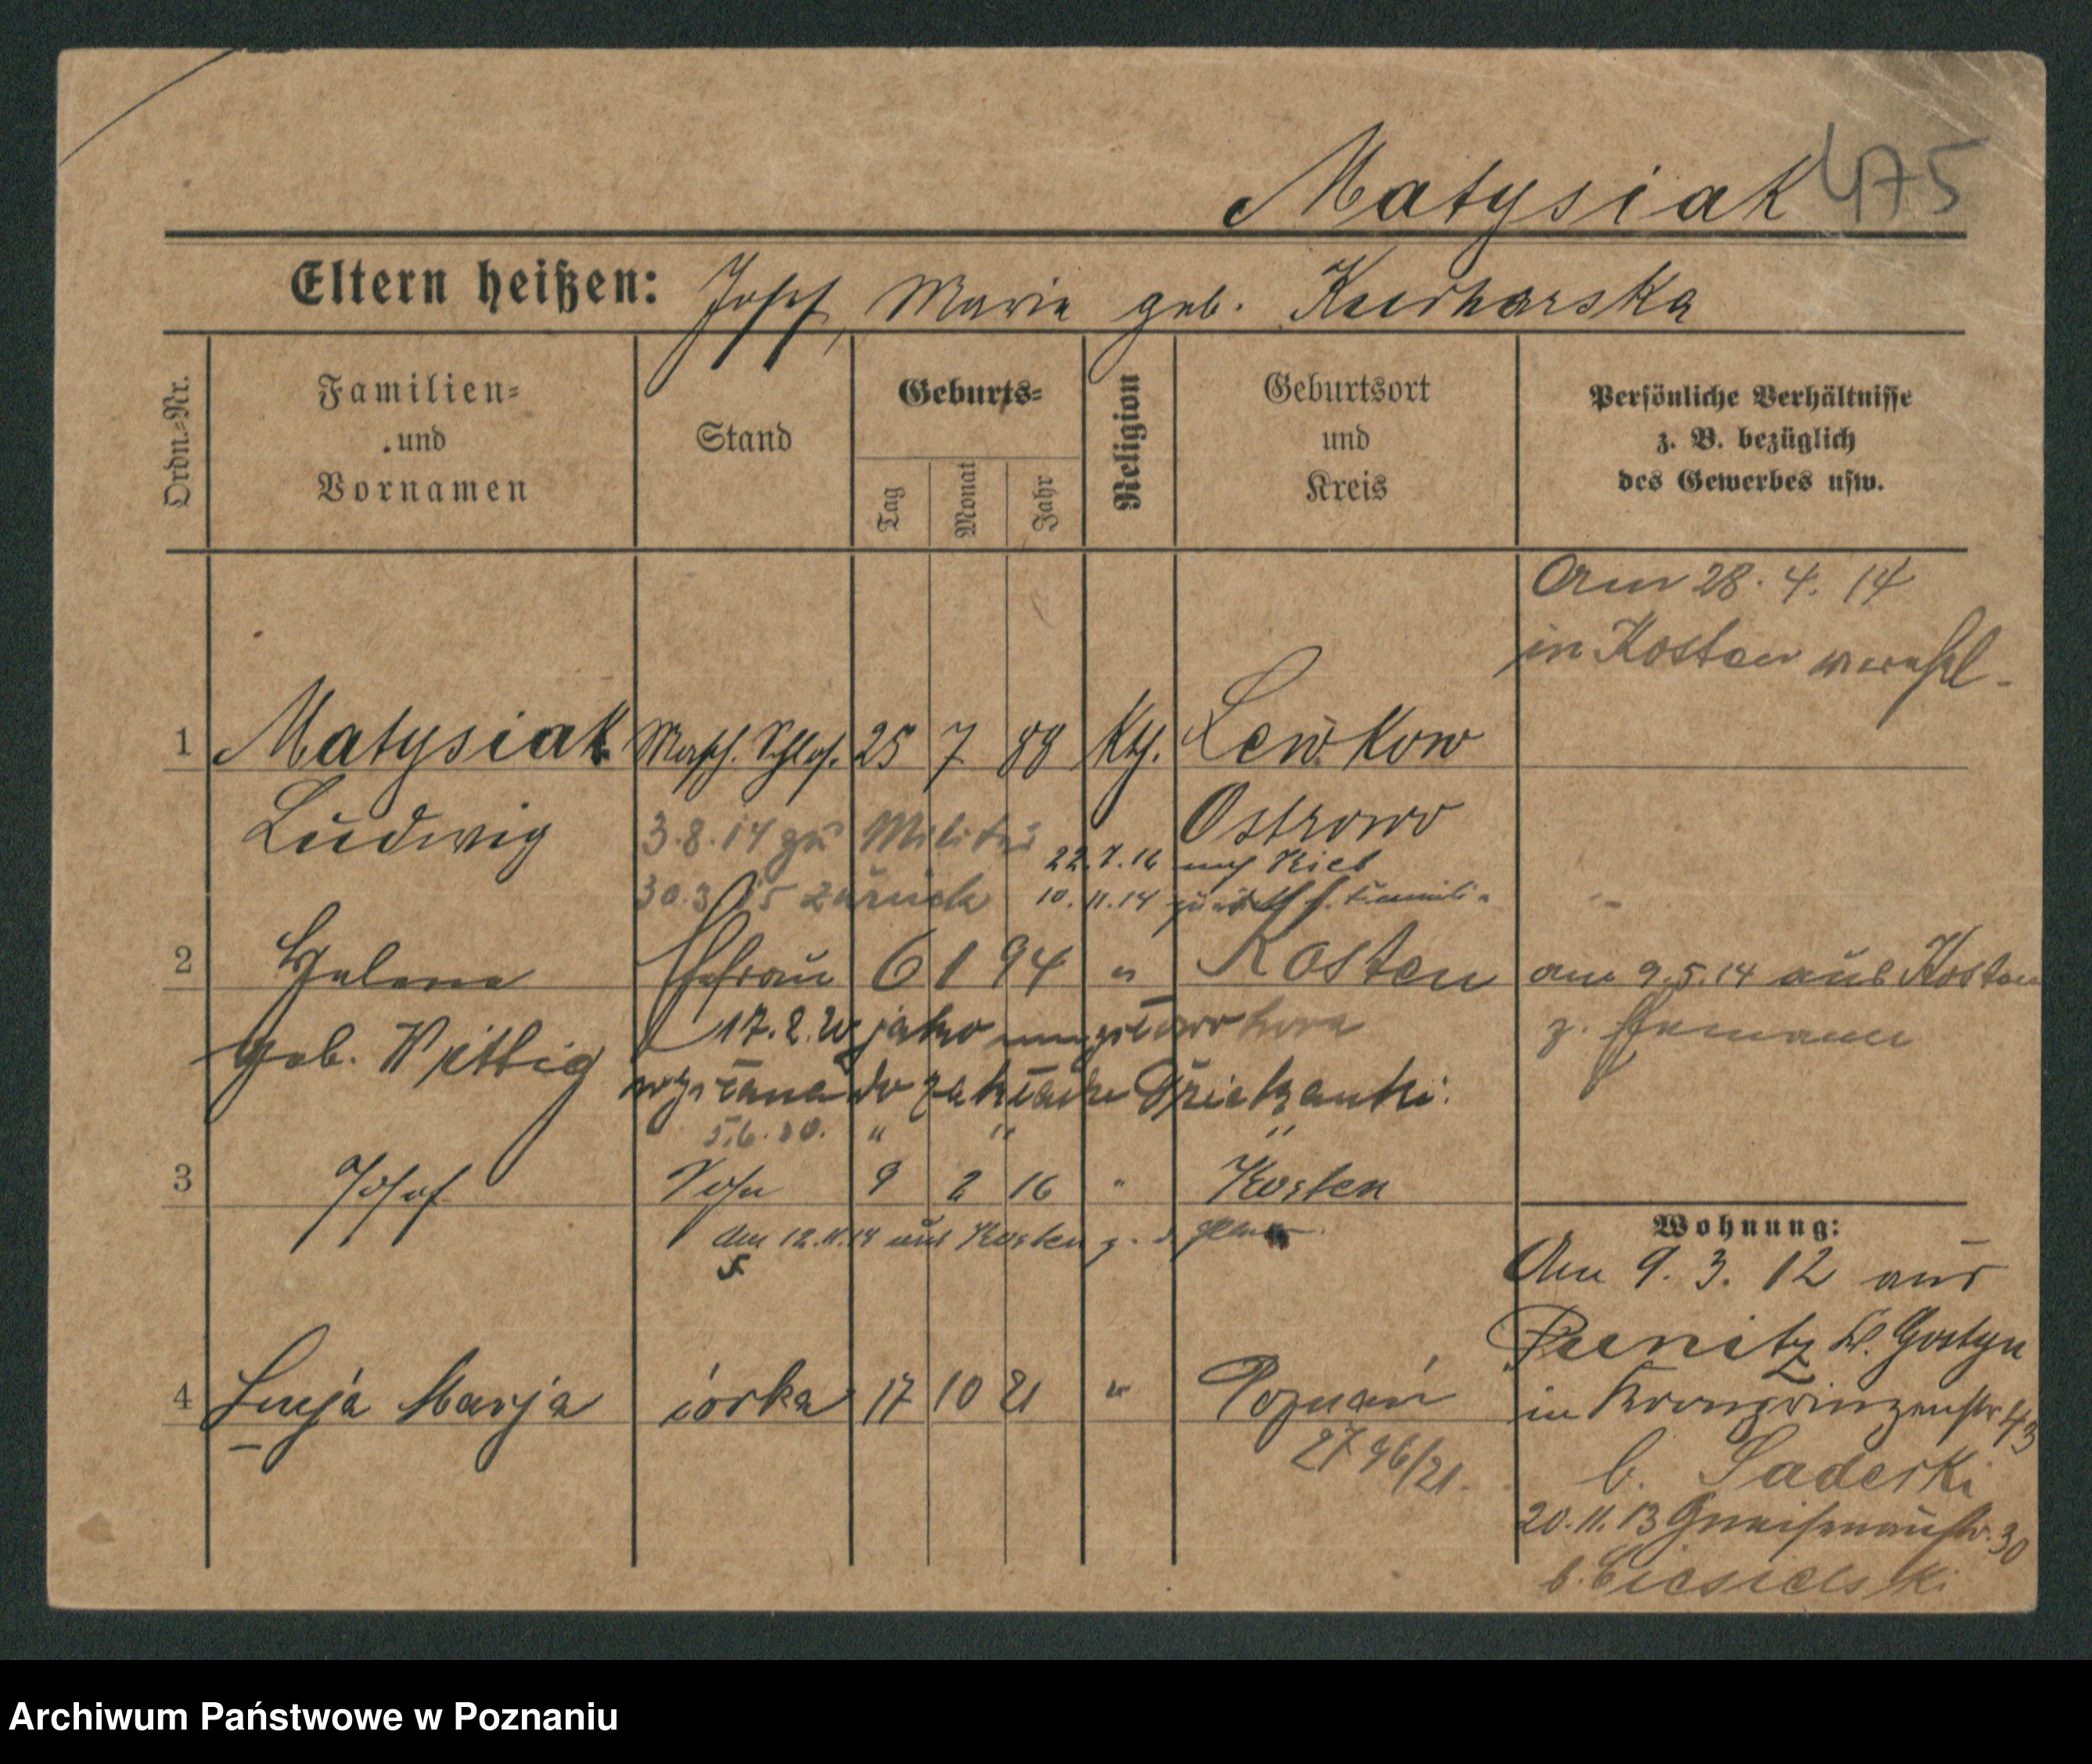 Matysiak 475
Eltern heißen: Josef, Marie geb. Kucharska
Ordn.=Nr.
Familien=
und
Vornamen
Stand
Geburts=
Tag
Monat
Jahr
Religion
Geburtsort
und
Kreis
Persönliche Verhältnisse
z. B. bezüglich
des Gewerbes usw.
Am 28. 4. 14
in Kosten verehel.
1 Matysiak Masch. Schlos. 25 7 88 Kth. Lewkow
Ludwig Ostrowo
3.8.14 zu Militär
22.7.16 nach Kiel
30.3.15 zurück
10.11.14 zurück
2 Helene Ehefrau 6 1 94 " Kosten am 9.5.14 aus Kosten
geb. Wittig 17.2. jako z. Ehemann
do zakładu Dziekanki.
5.6. " " "
3 Josef Sohn 9 2 16 " Kosten
Am 12.11.14 aus Kosten z.
Wohnung:
Am 9. 3. 12 aus
Punitz Kr. Gostyn
4 Marja córka 17 10 21 " Poznań in Kronprinzenstr 43
2796/21.
b. Saderski
20.11.13 Gneisenaustr. 30
b. Ciesielski
Archiwum Państwowe w Poznaniu